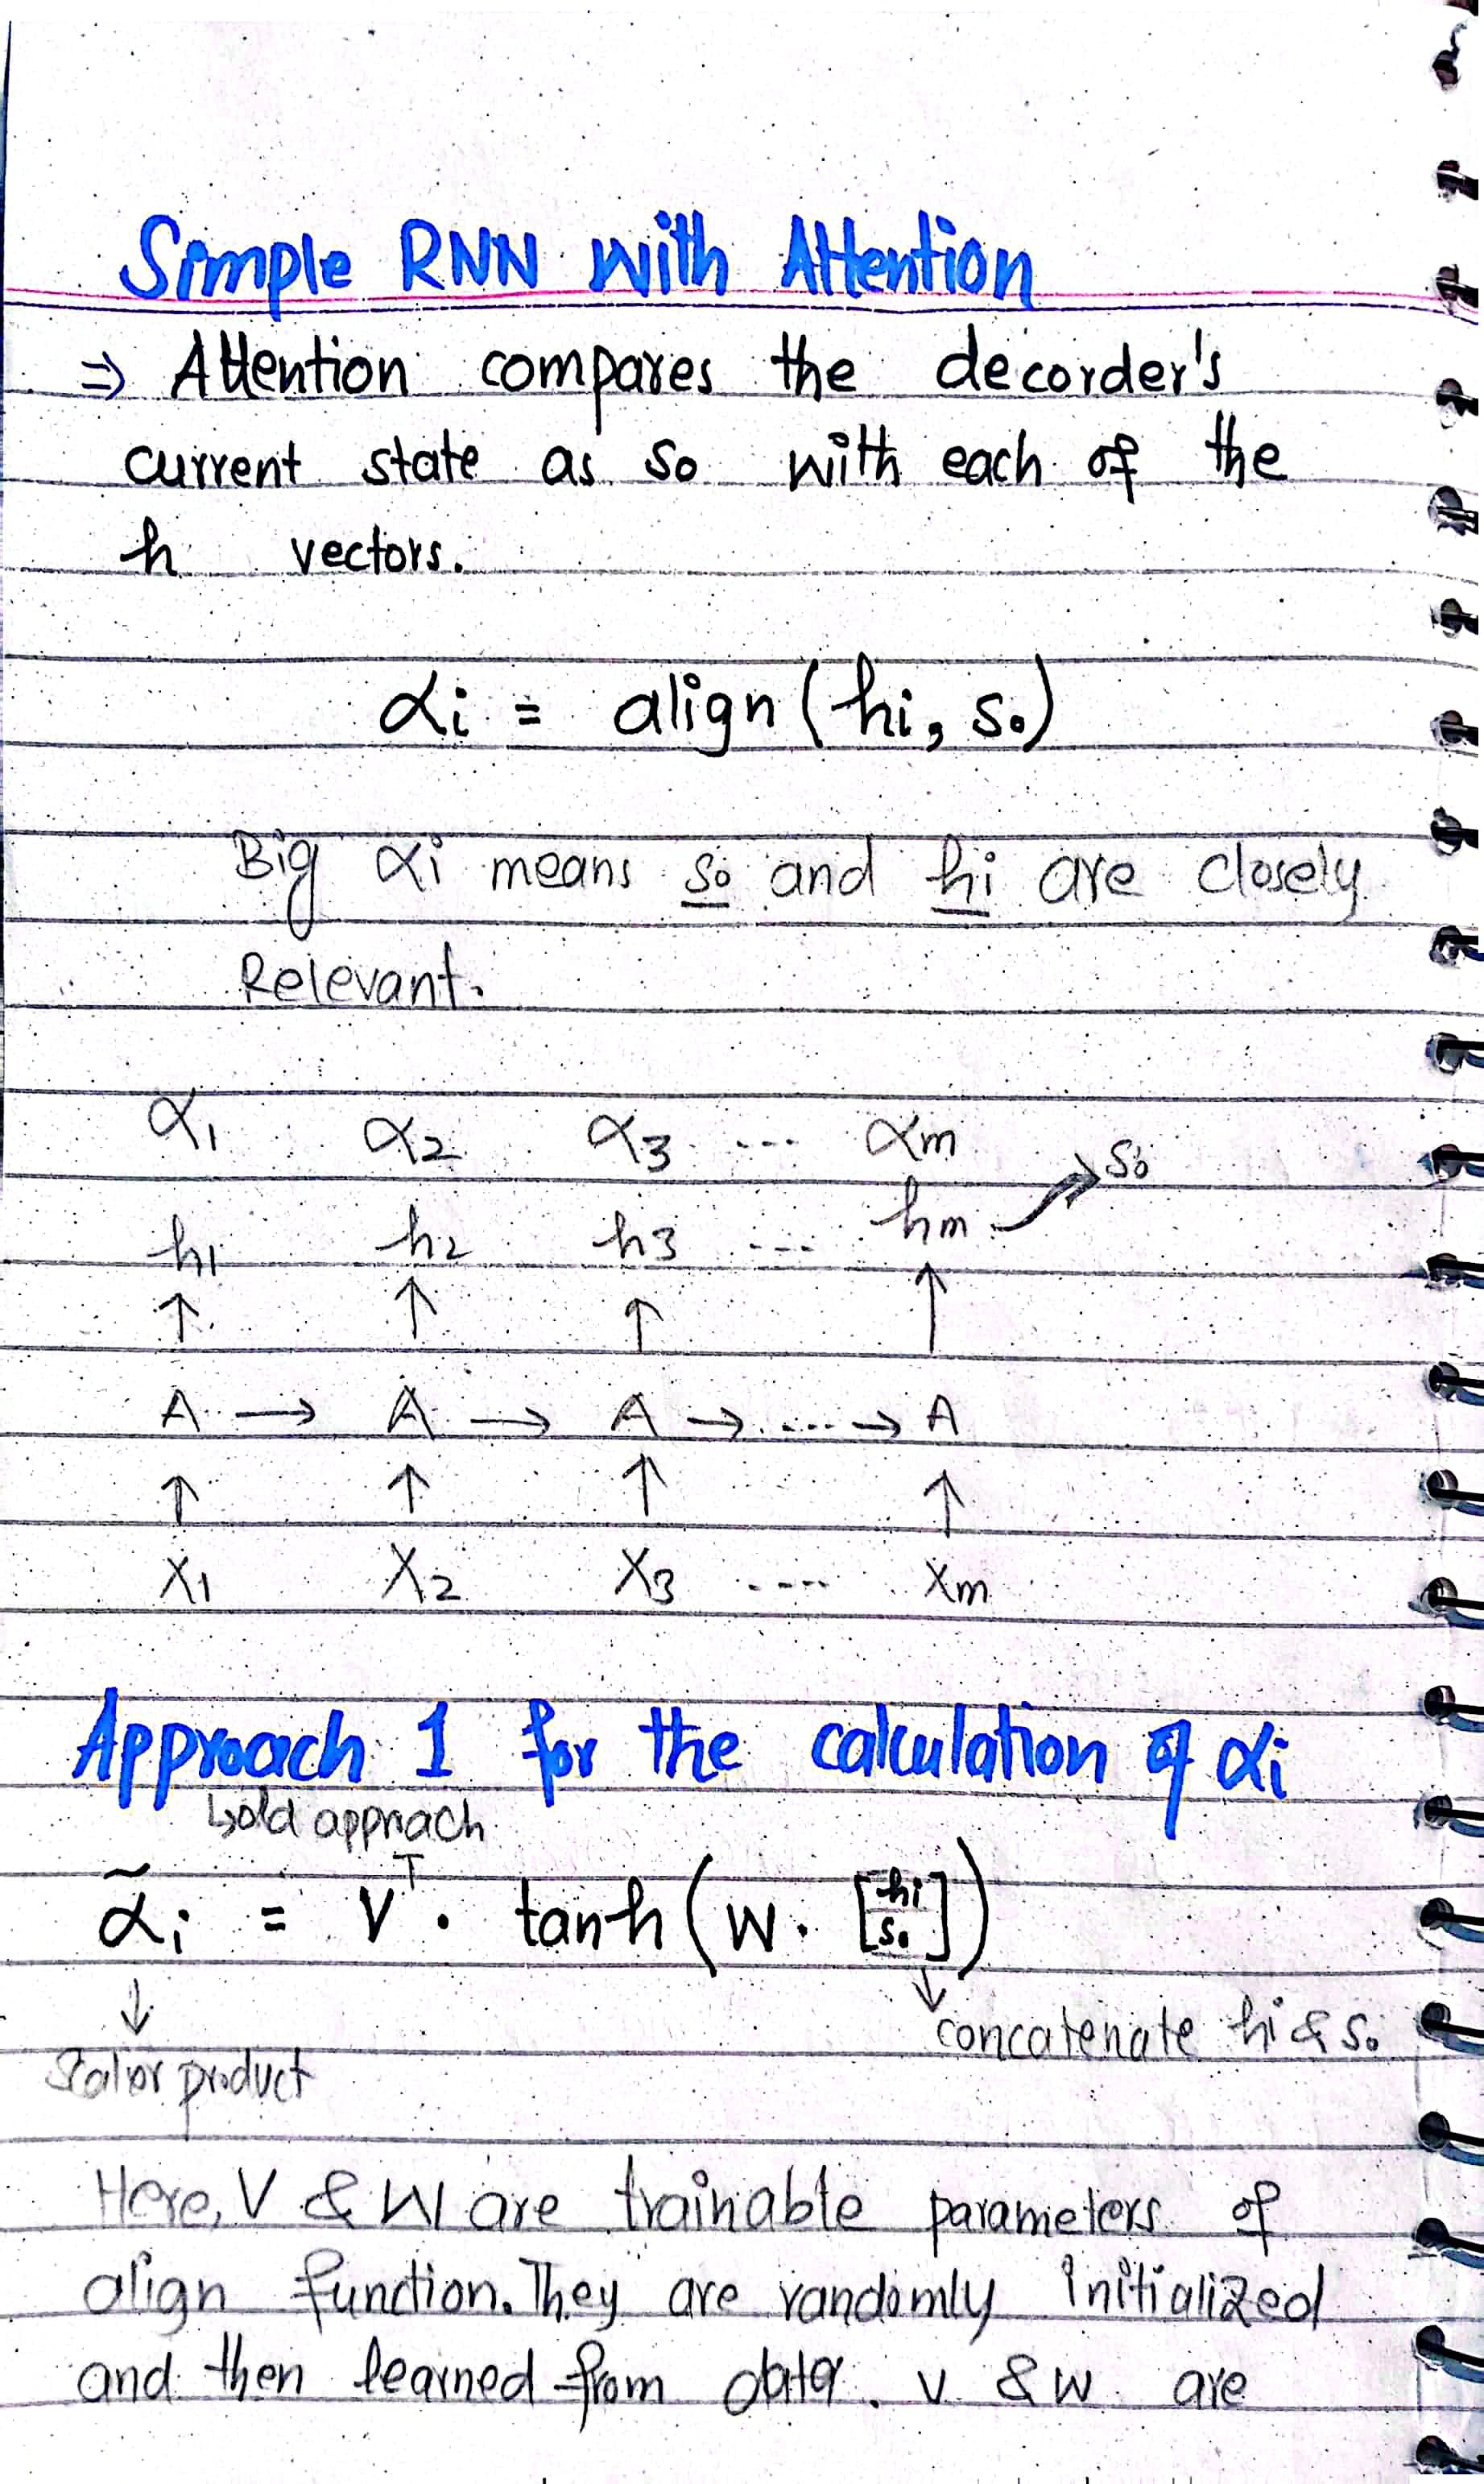 Simple RNN with Attention
⇒ Attention compares the decorder's
current state as so with each of the
h vectors.
αi = align (hi, s₀)
Big αi means so and hi are closely
Relevant.
α₁ α₂ α₃ ... αm
s₀
h₁ h₂ h₃ ... hm
↑ ↑ ↑ ↑
A → A → A → ... → A
↑ ↑ ↑ ↑
X₁ X₂ X₃ .... Xm
Approach 1 for the calculation of αi
↳old approach
α̃i = Vᵀ · tanh (W · [hi / s₀])
↓ ↓
concatenate hi & s₀
Scalor product
Here, V & W are trainable parameters of
align function. They are randomly initialized
and then learned from data. V & W are